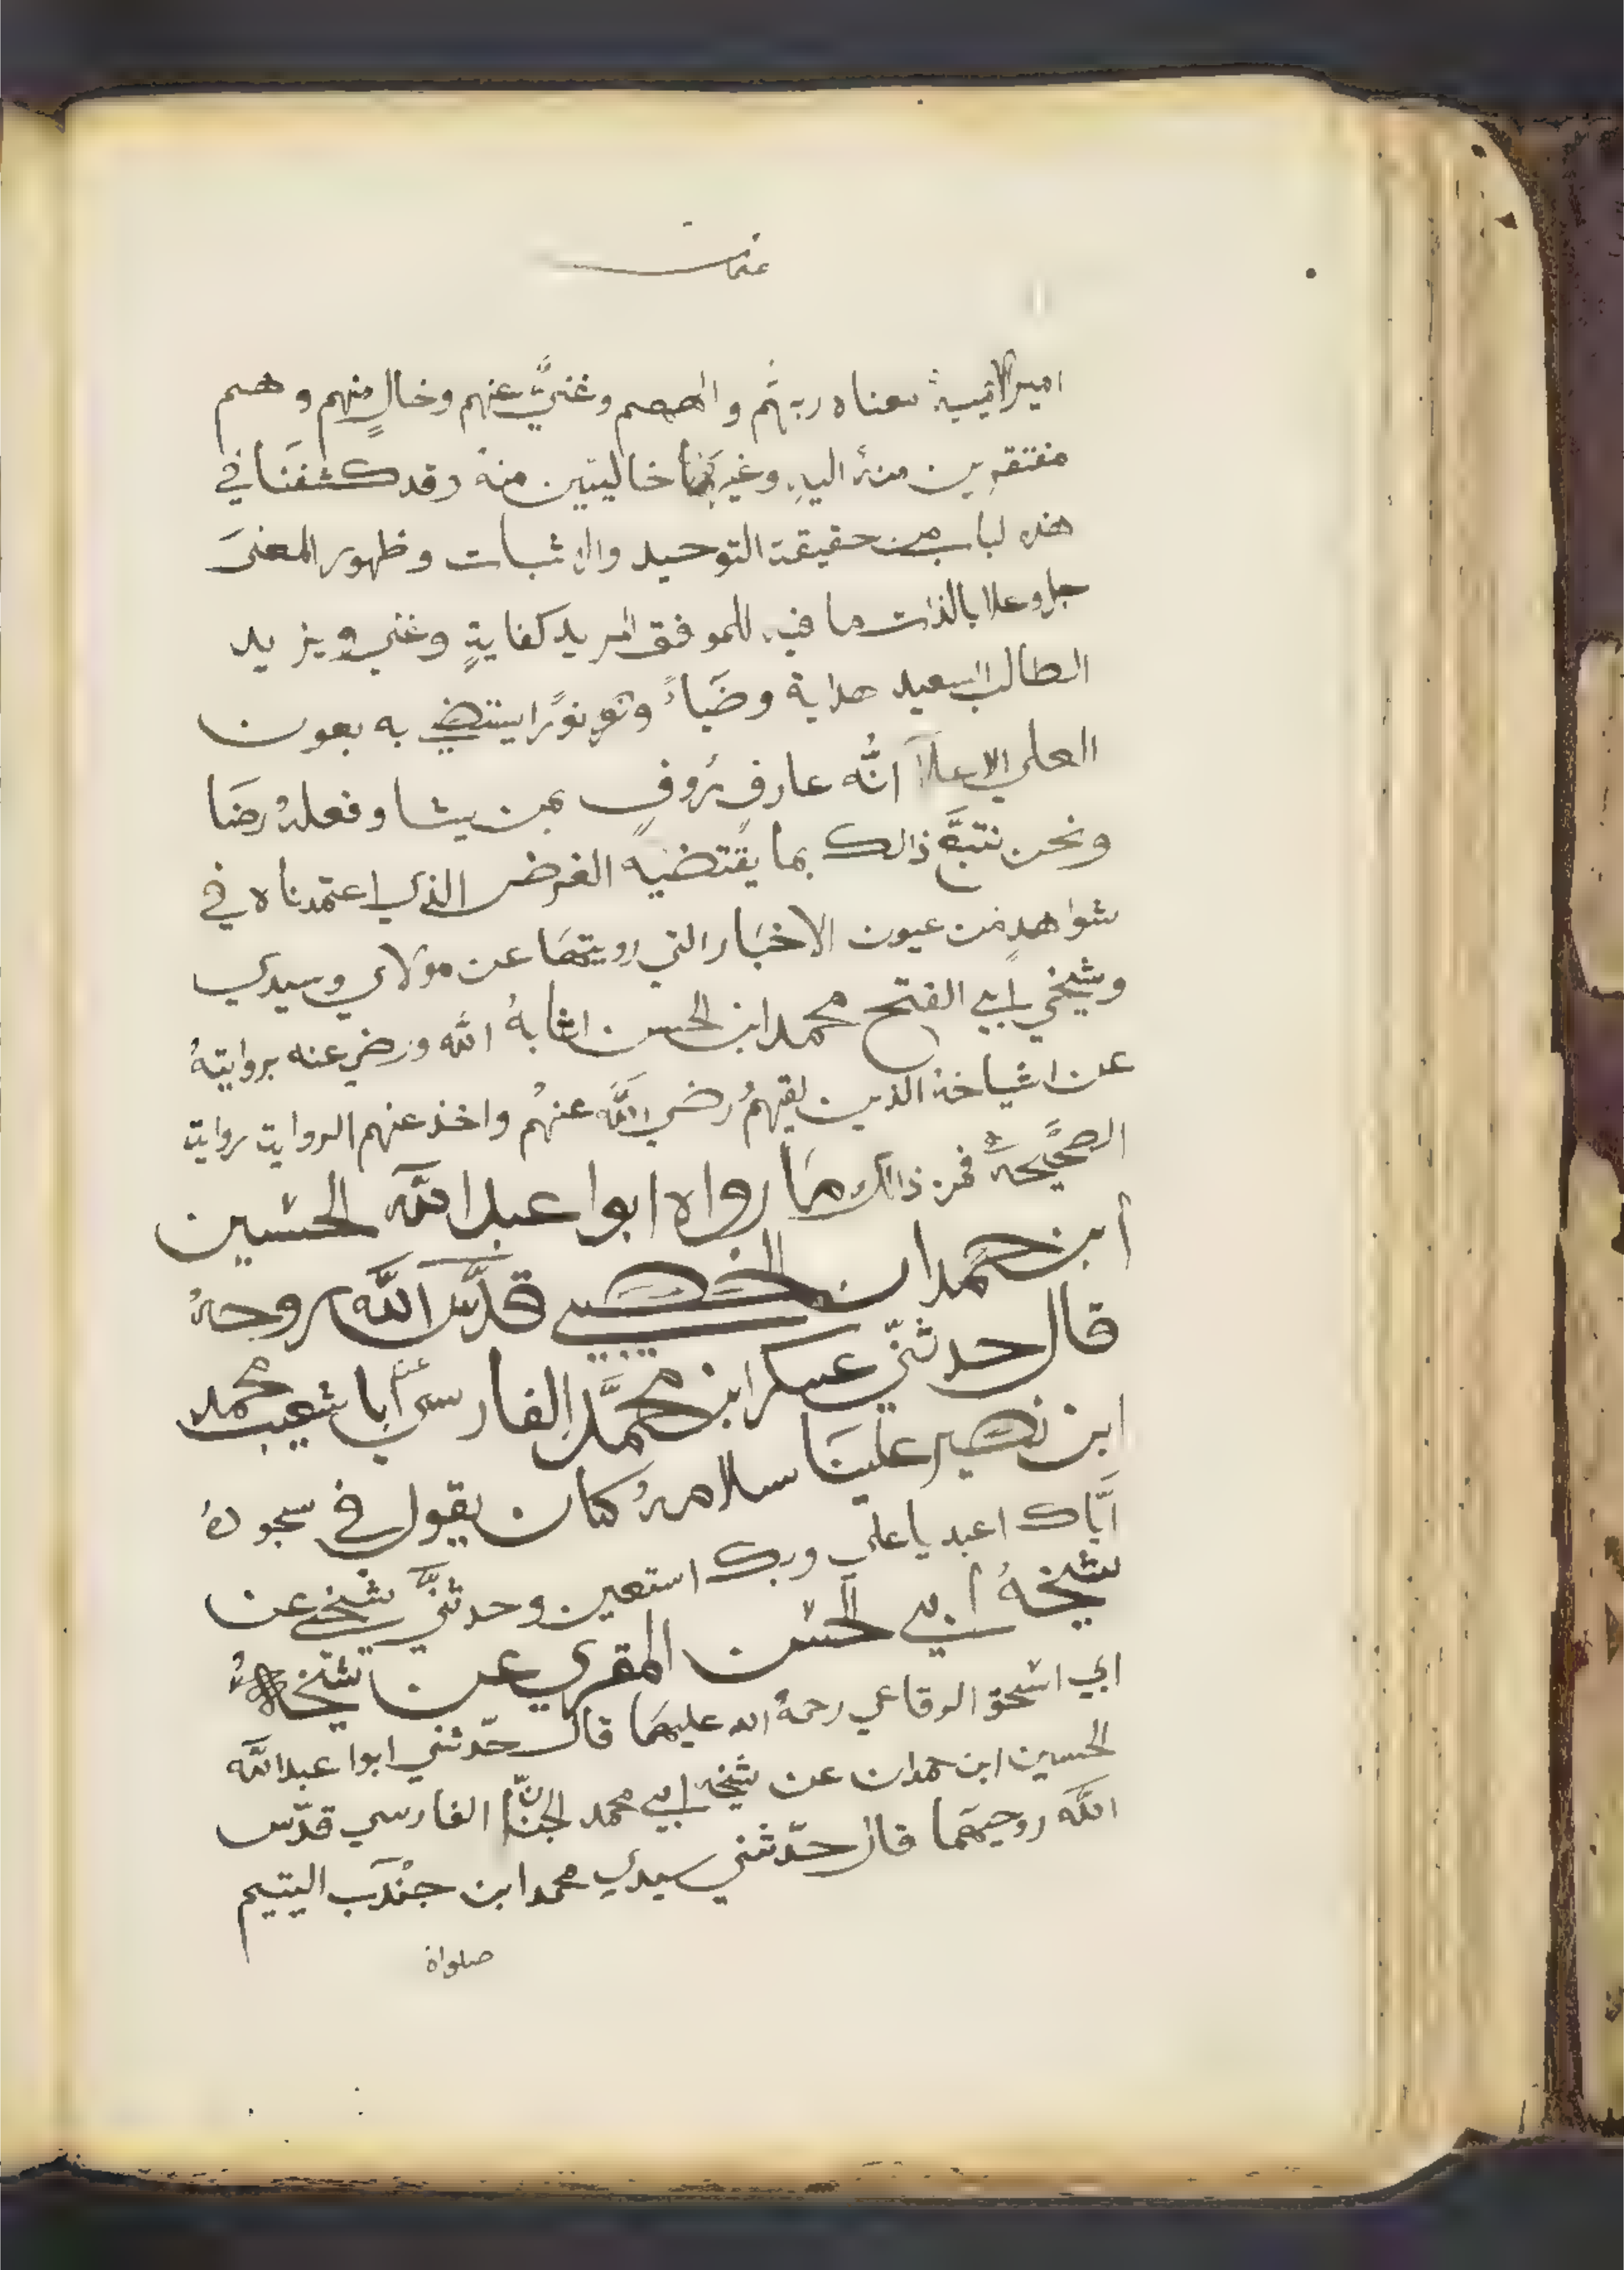 عثمان
امير الانبية معناه ربهُم والههم وغنيٌّ عنهم وخالٍ منهم وهم
مفتقرين منهُ اليهِ وغير خاليين منه وقد كشفنَا في
هذه لباب من حقيقة التوحيد والاثبات وظهور المعنىَ
جل وعلا بالذات ما فيه للموفق المريد كفايةٍ وغنى ويزيد
الطالب السعيد هداية وضَياءً ونورًا يستضي به بعون
العلي الاعلا انُّه عارفٍ رُوفٍ بمن يشا وفعلهُ رضَا
ونحن نتبَّع ذالك بما يقتضيه الغرض الذي اعتمدناه في
شواهدٍ من عيون الاخبَار التي رويتهَا عن مولاي وسيدي
وشيخي ابي الفتح محمد ابن الحسن اثابهُ الله ورضي عنه بروايتهُ
عن اشياخهُ الذين لقيهمُ رضي اللَّه عنهُم واخذ عنهم الرواية رواية
الصحيحة فمن ذالك مَا رواه ابوا عبد اللَّه الحسين
أبن حمدان الخصيبي قدَّس اللَّه روحهُ
قال حدثنّي عسكر ابن محمَّد الفارسي عن أبا شعيب محمد
ابن نصير علينَا سلامهُ كان يقول في سجودهُ
أيَّاك اعبد يا علي وبك استعين وحدثنَّي شيخي عن
شيخهُ أبي الحسن المقري عن شيخهُ
ابي اسحق الرقاعي رحمهُ الله عليهمَا قال حدّثني ابوا عبد اللَّه
الحسين ابن حمدان عن شيخه ابي محمد الجنّان الفارسي قدّس
اللَّه روحيهمَا قال حدّثني سيدي محمد ابن جنْدَب اليتيم
صلواة